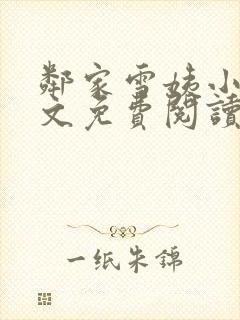 鄰家雪姨小
文免費閱讀
一纸朱錦